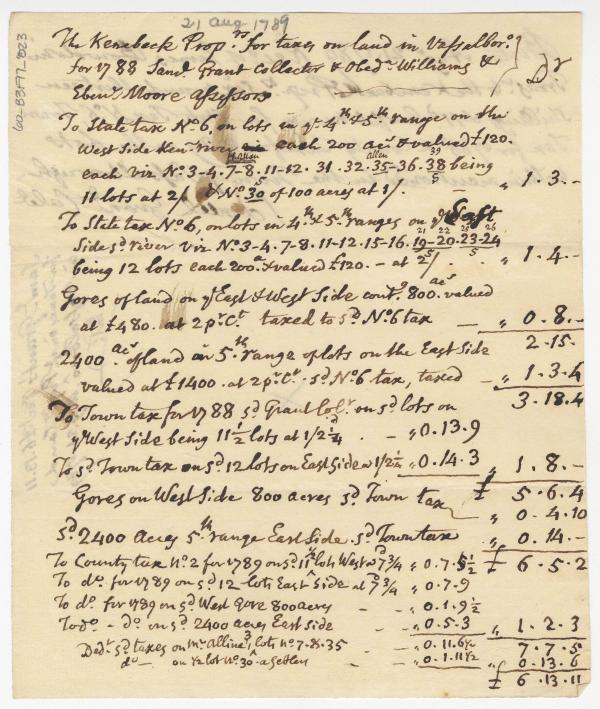 21 Aug 1789
60-83F77-2023
The Kenebeck Prop.rs For taxes on land in Vassalboro.
for 1788 Sam.l Grant Collector & Obed.h Williams &
Eben.r Moore Assessors Dr
To State tax No. 6, on lots in ye 4th & 5th range on the
West Side Ken.k river each 200 acs & valued £120.
each viz No 3-4-7-8-11-12. 31. 32. 35-36. 38 being
allen
39
5
11 lots at 2/ & No. 30 of 100 acres at 1/. — " 1. 3. —
5
To State tax No 6, on lots in 4th & 5th ranges on ye East
Side sd river viz No 3-4-7-8-11-12-15-16. 19-20-23-24
21 22 25 26
5 5
being 12 lots each 200 a & valued £120. — at 2/. — " 1. 4. —
Gores of land on ye East & West Side cont.g 800 acs valued
at £480. at 2 pr Ct taxed to sd No 6 tax — " 0. 8. —
2. 15. —
2400 acs of land in 5th range of lots on the East Side
valued at £1400. at 2 pr Ct sd No 6 tax, taxed — " 1. 3. 4
3. 18. 4
To Town tax for 1788 sd Grant Col.r on sd lots on
ye West Side being 11 1/2 lots at 1/2 1/4 . — " 0. 13. 9
To sd Town tax on sd 12 lots on East Side a 1/2 1/4 " 0. 14. 3 " 1. 8. —
£ 5. 6. 4
Gores on West Side 800 acres sd Town tax " 0. 4. 10
sd 2400 Acres 5th range East Side. sd Town tax " 0. 14. —
£ 6. 5. 2
To County tax No. 2 for 1789 on sd 11 1/2 lots West a 7d 3/4 " 0. 7. 5 1/2
To do. for 1789 on sd 12 lots East Side at 7d 3/4 " 0. 7. 9
To do. for 1789 on sd West Gore 800 acres — " 0. 1. 9 1/2
To do — do. on sd 2400 acres East Side — " 0. 5. 3 " 1. 2. 3
7. 7. 5
Ded.t sd taxes on Mr Alline 3 lots No. 7. 8. 35 — " 0. 11. 6 1/2
do — on 1/2 lot No. 30 a Settler — " 0. 1. 11 1/2 " 0. 13. 6
£ 6. 13. 11